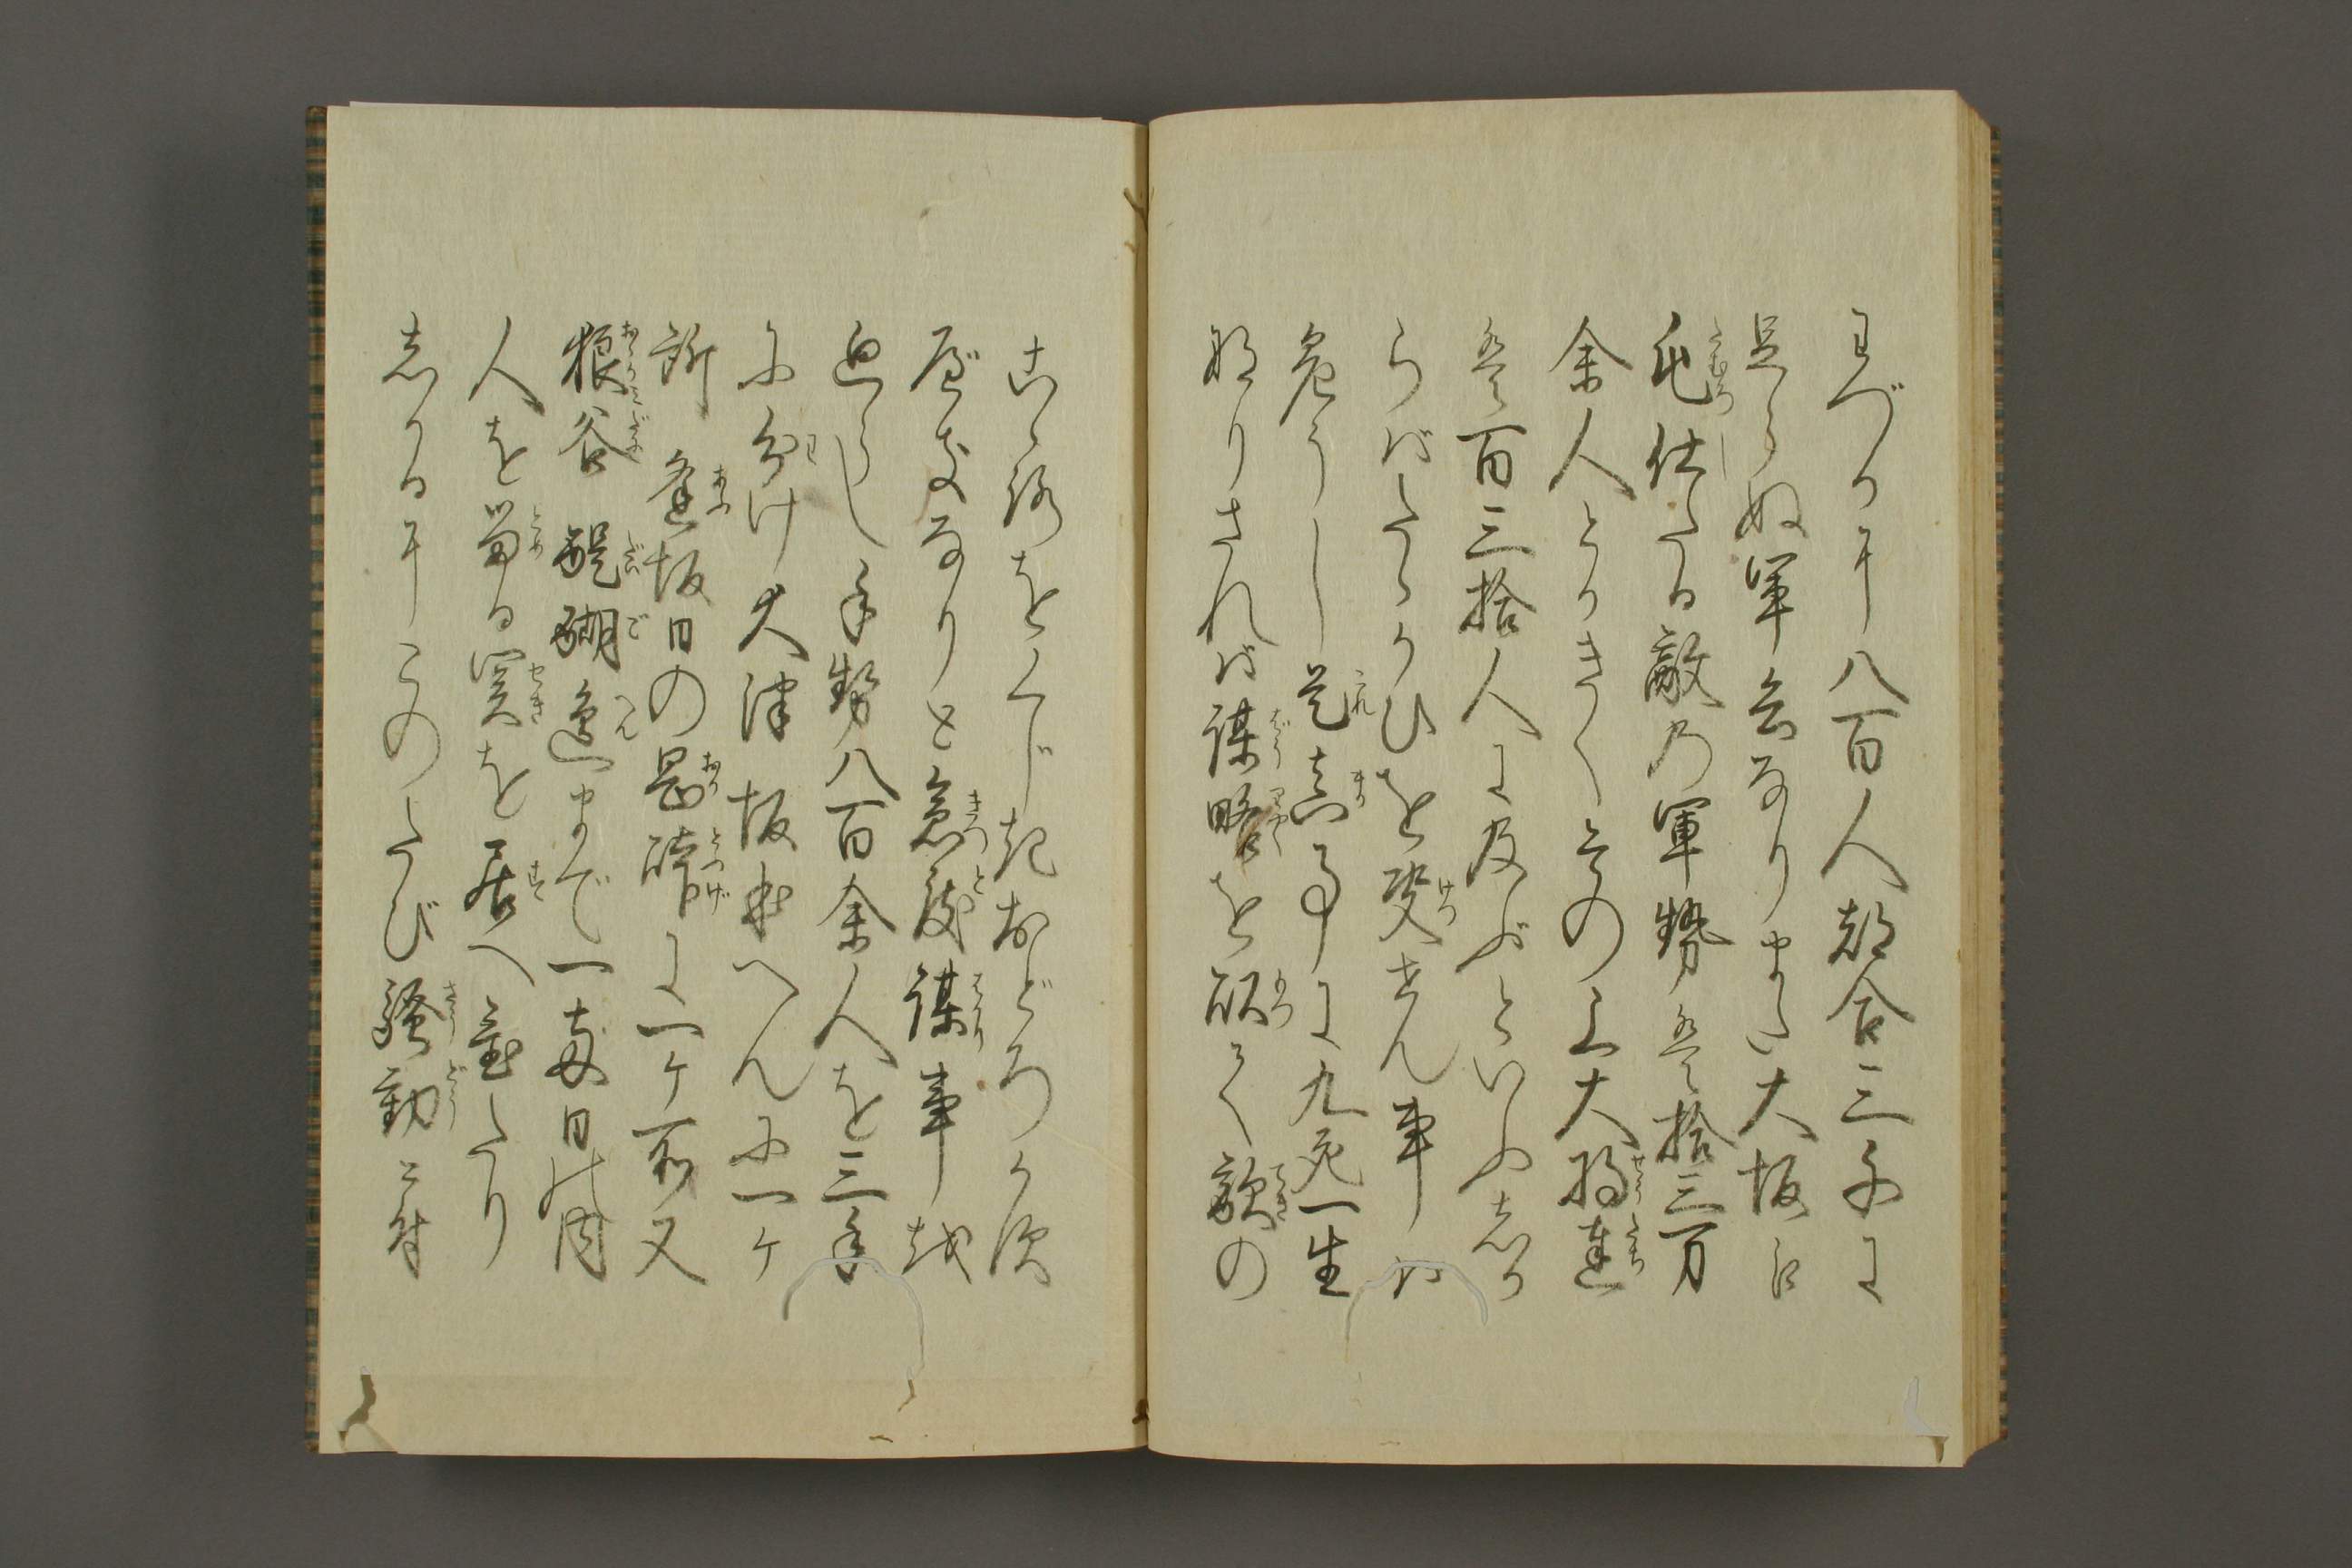 わづか千八百人都合三千に
足らぬ軍兵なりまた大坂に
屯仕たる敵の軍勢は拾三万
余人とかきくその上大将達
は百三拾人に及ぶといふしか
らばたゝかひを決せん事は
危うし是真事に九死一生
なりされば謀略を以て敵の
こゝろをくじきおどろかす
べきなりと急度謀事を
廻らし手勢八百余人を三手
に分け大津坂本へんに一ヶ
所逢坂日の岡峠に一ヶ所又
狼谷醍醐辺まで一両日の内
人を留る関を居へ置たり
しかる千このたび騒動に付